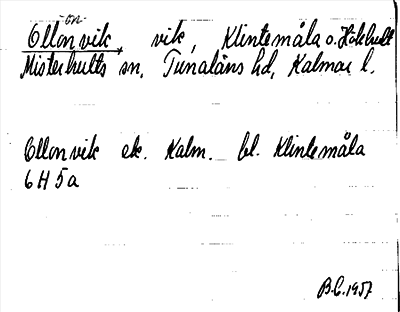 on
Ollonvik, vik, Klintemåla o. Hökhult
Misterhults sn, Tunaläns hd, Kalmar l.
Ollonvik ek. Kalm. bl. Klintemåla
6H 5a
B.C. 1957